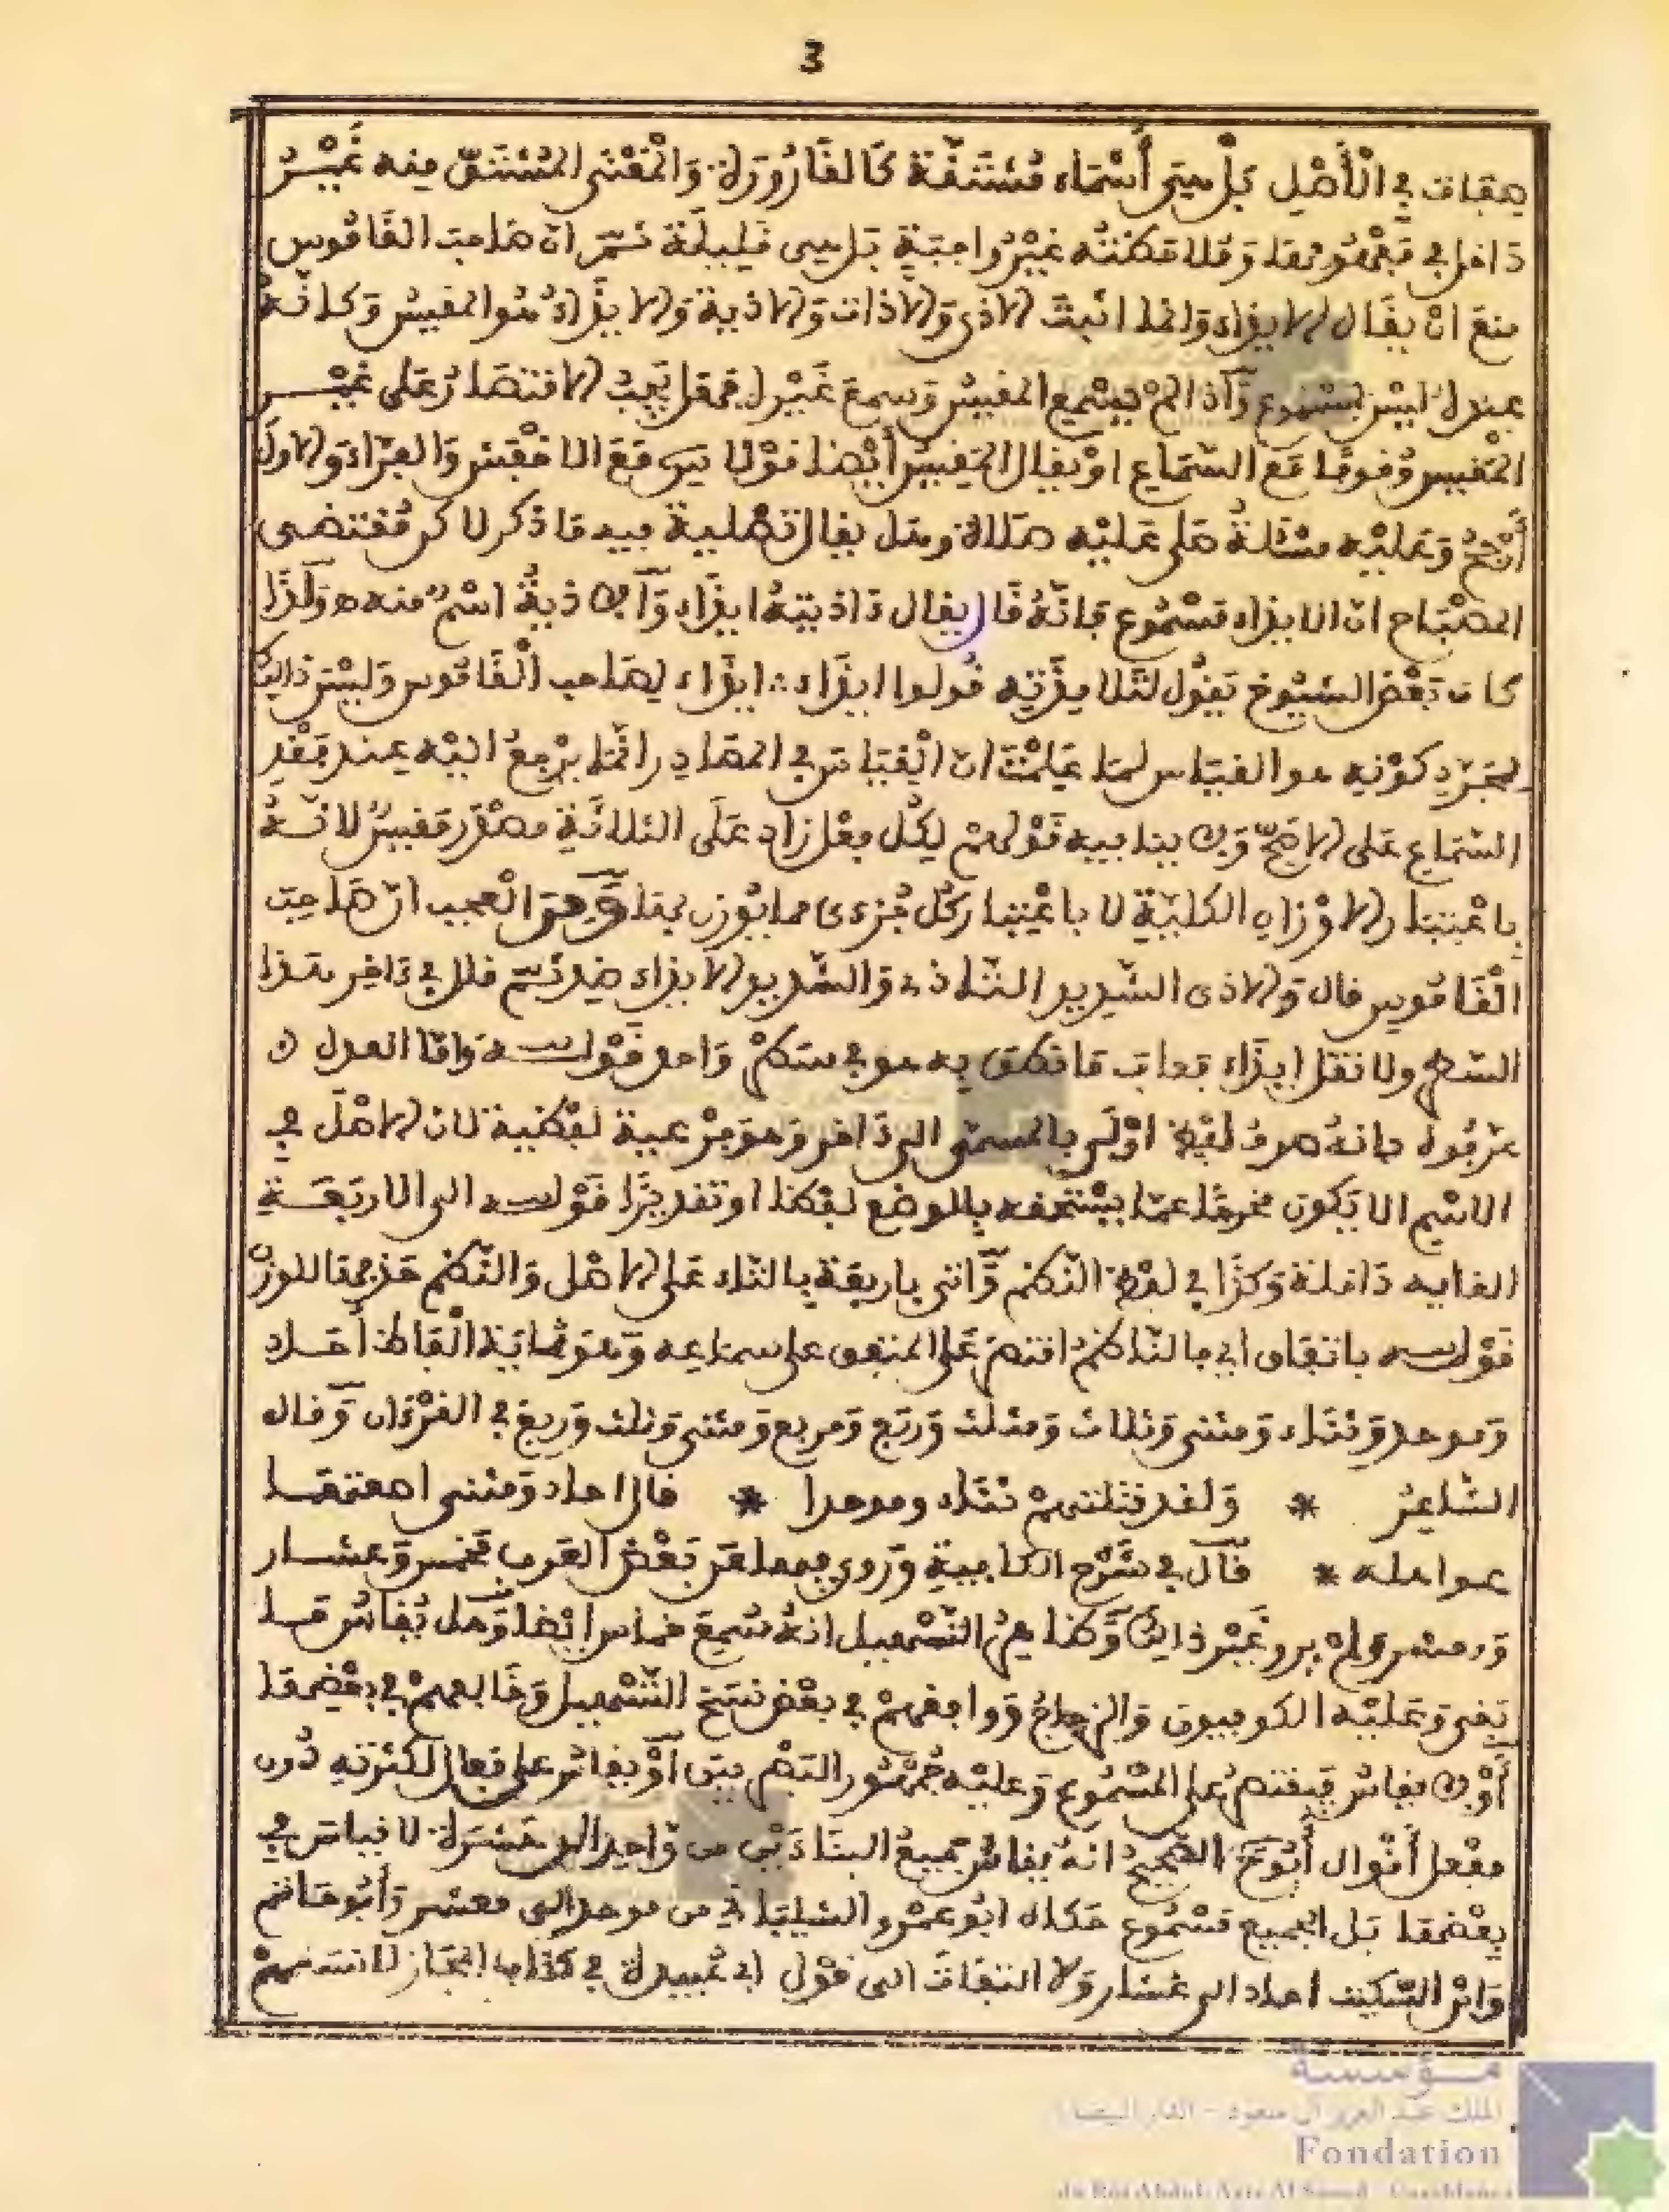 3
صفات في الأصل بل هي أسماء مشتقة كالقارورة والمعنى المشتق منه غير
داخل في مفهومها وملاحظته غير واجبة بل هي قليلة ثم ان صاحب القاموس
منع ان يقال الايذاء وانما اثبت الاذى والاذاة والاذية والايذاء هو المقيس وكانه
عنده ليس بمسموع وإذا لم يسمع المقيس وسمع غيره فهل يجب الاقتصار على غير
المقيس وقوفا مع السماع او يقال المقيس أيضا قولا سيبويه مع الاخفش والفراء والاول
أرجح وعليه مسئلة صلى عليه صلاة وهل يقال تصلية فيه ما ذكر لاكن مقتضى
المصباح ان الايذاء مسموع فانه قال يقال ءاذيته ايذاء والاذية اسم منه ولذا
كان بعض الشيوخ يقول لتلامذته قولوا ايذاء ايذاء لصاحب القاموس وليس ذالك
لمجرد كونه هو القياس لما علمت ان القياس في المصادر انما يرجع اليه عند فقد
السماع على الاصح ولا ينافيه قولهم لكل فعل زاد على الثلاثة مصدر مقيس لانه
باعتبار الاوزان الكلية لا باعتبار كل جزءي مما يوزن بها ومن العجب ان صاحب
القاموس قال والاذي الشديد التأذي والشديد الايذاء ضد ثم قال في ءاخر هذا
السطر ولا تقل ايذاء فعاب ما نطق به هو في سطر واحد قوله واما العدل
عرفوه بانه صرف لفظ اولى بالمسمى الى ءاخر وهو فرعية لفظية لان الاصل في
الاسم الا يكون مخرجا عما يستحقه بالوضع لفظا او تقديرا قوله الى الاربعة
الغاية داخلة وكذا في لفظ النظم وأتى باربعة بالتاء على الاصل والنظم حذفها للوزن
قوله باتفاق اي فالناظم اقتصر على المتفق على سماعه وهو ثمانية الفاظ أحاد
وموحد وثناء ومثنى وثلاث ومثلث ورباع ومربع ومثنى وثلث وربع في القرءان وقال
الشاعر * ولقد قتلتهم ثناء وموحدا * قال احاد ومثنى اصعقتها
صواهله * قال في شرح الكافية وروي عن بعض العرب مخمس وعشار
ومعشر ولم يرو غير ذالك وكذا في التسهيل انه سمع خماس ايضا وهل يقاس ما
بقي وعليه الكوفيون والزجاج ووافقهم في بعض نسخ التسهيل وخالفهم في بعضها
أو لا يقاس فيقتصر على المسموع وعليه جمهور البصريين أو يقاس على فعال لكثرته دون
مفعل أقوال أبو ح الصحيح انه يقاس جميع البناءين من واحد الى عشرة لا قياس في
بعضها بل الجميع مسموع حكاه ابو عمرو الشيباني من موحد الى معشر وأبو حاتم
وابن السكيت احاد الى عشار ولا التفات الى قول ابي عبيدة في كتاب المجاز لا نسمعهم
مؤسسة
الملك عبد العزيز آل سعود - الدار البيضاء
Fondation
du Roi Abdul-Aziz Al Saoud - Casablanca